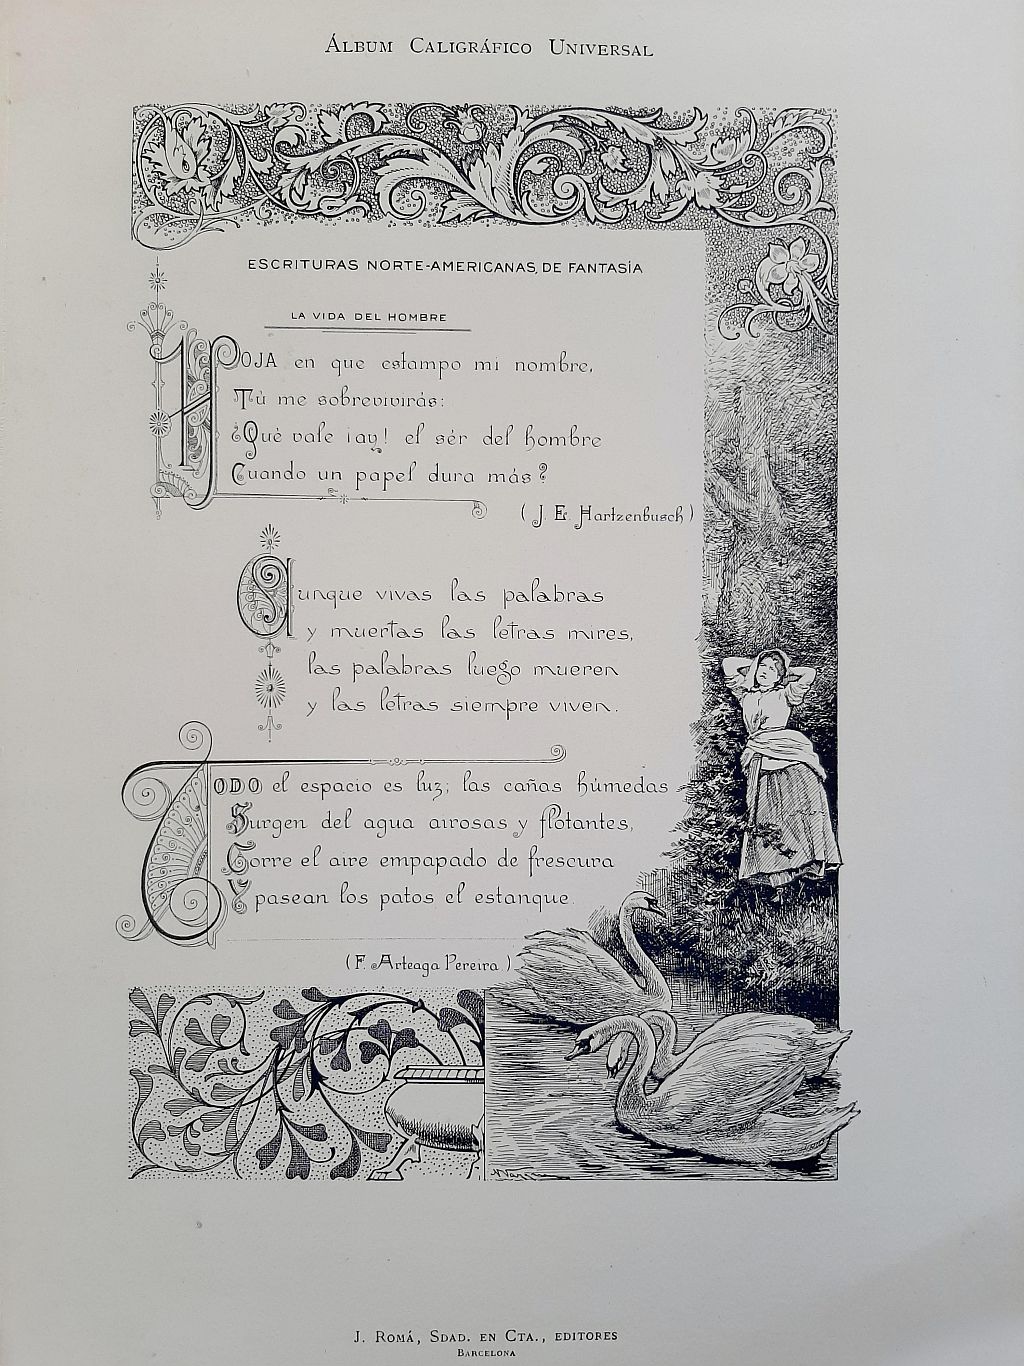 ÁLBUM CALIGRÁFICO UNIVERSAL
ESCRITURAS NORTE-AMERICANAS, DE FANTASÍA
LA VIDA DEL HOMBRE
HOJA en que estampo mi nombre,
Tú me sobrevivirás:
¿Qué vale ¡ay! el sér del hombre
Cuando un papel dura más?
(J. E. Hartzenbusch)
Aunque vivas las palabras
y muertas las letras mires,
las palabras luego mueren
y las letras siempre viven.
TODO el espacio es luz; las cañas húmedas
Surgen del agua airosas y flotantes,
Corre el aire empapado de frescura
Y pasean los patos el estanque.
(F. Arteaga Pereira)
J. ROMÁ, SDAD. EN CTA., EDITORES
BARCELONA